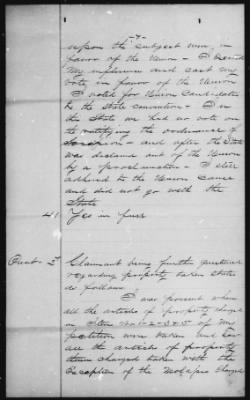 -7-
upon the subject were, in
favor of the Union - I
my influence and cast my
vote in favor of the Union
I voted for Union Candidates
to the State convention - In
this State we had no vote on
the ratifying the ordinance of
Secession - and after the State
was declared out of the Union
by a proclamation - I still
adhered to the Union Cause
and did not go with the
State
41 Yes in full
Claimant being further questioned
regarding property taken states
as follows
I was present when
all the articles of property charged
in Items No 1-2-3 of my
petition were taken and
all the articles of property
therein charged taken with the
exception of the Molasses charged